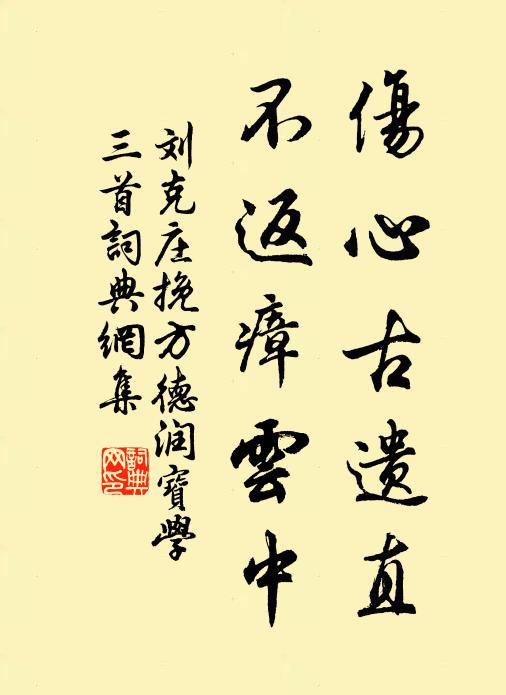 傷心古遺直
不返瘴雲中
刘克庄挽方德润寶學
三首詞典網集
詞典网印